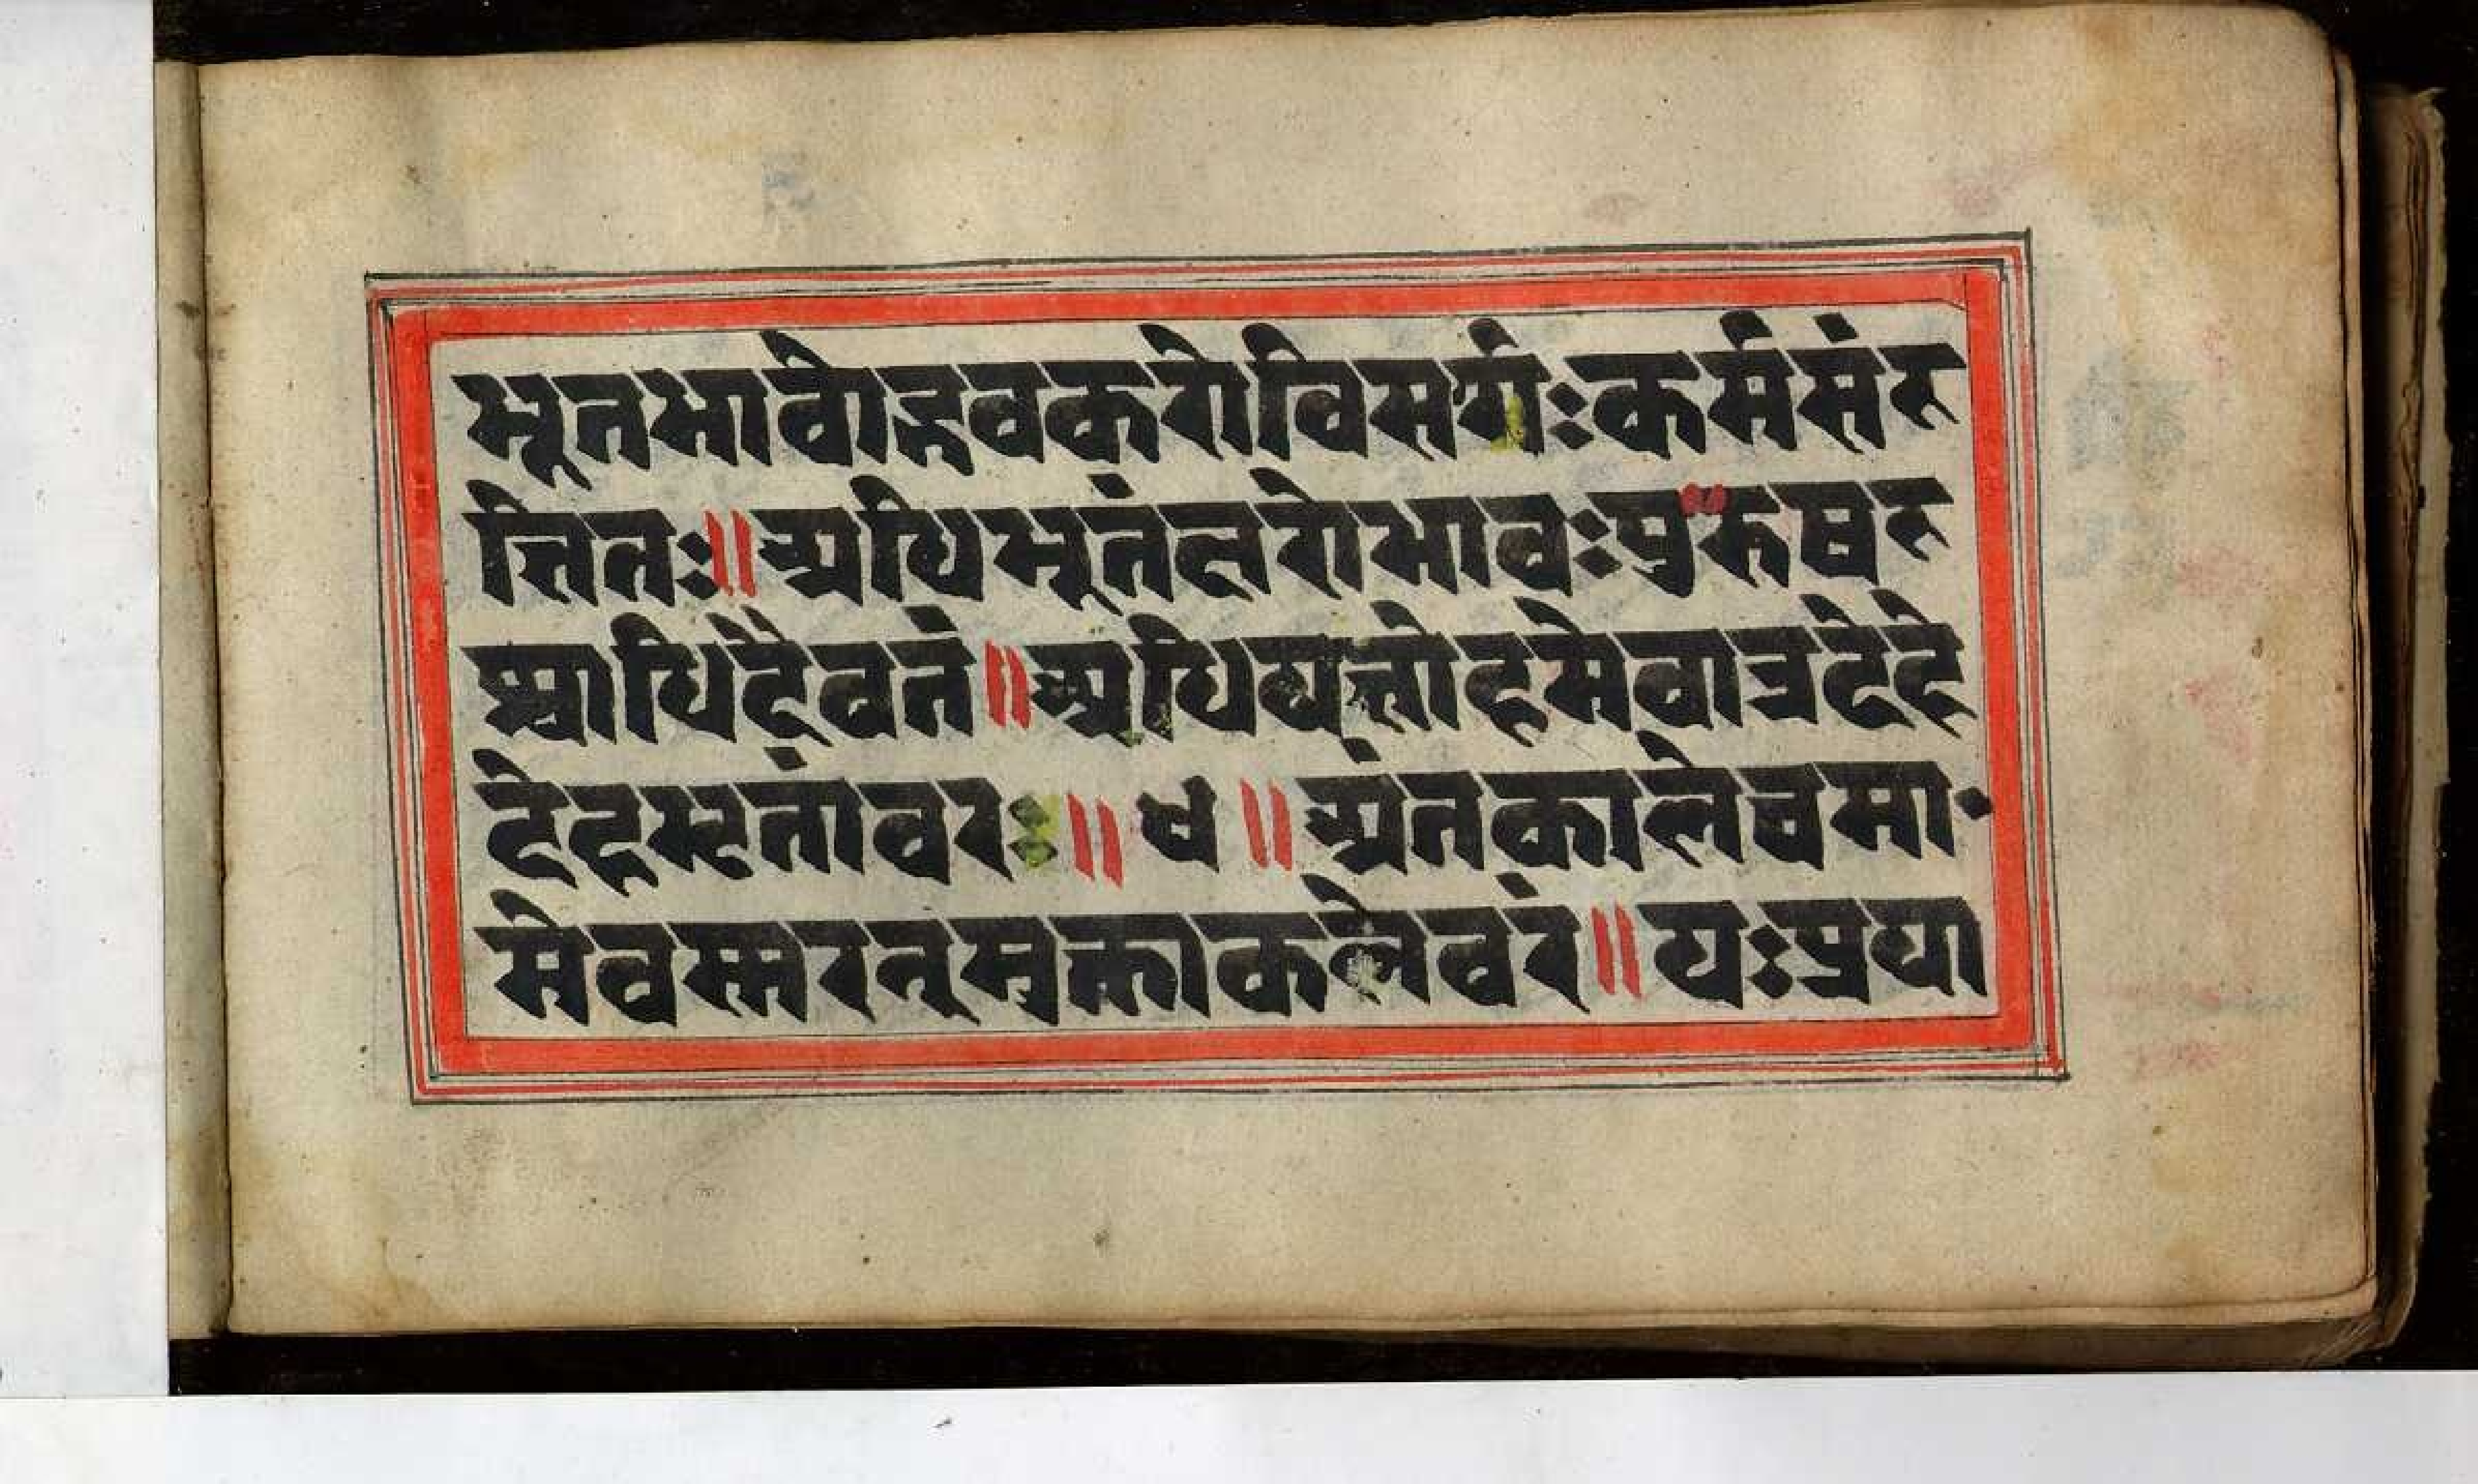 भूतभावोद्भवकरोविसर्गः कर्मसंज्ञ
ज्ञितः ॥ अधिभूतंक्षरोभावः पुरुषश्
श्चाधिदैवतं ॥ अधियज्ञोहमेवात्रदेहे
देहभृतांवरः ॥ ४ ॥ अंतकालेचमा
मेवस्मरन्मुक्त्वाकलेवरं ॥ यः प्रया